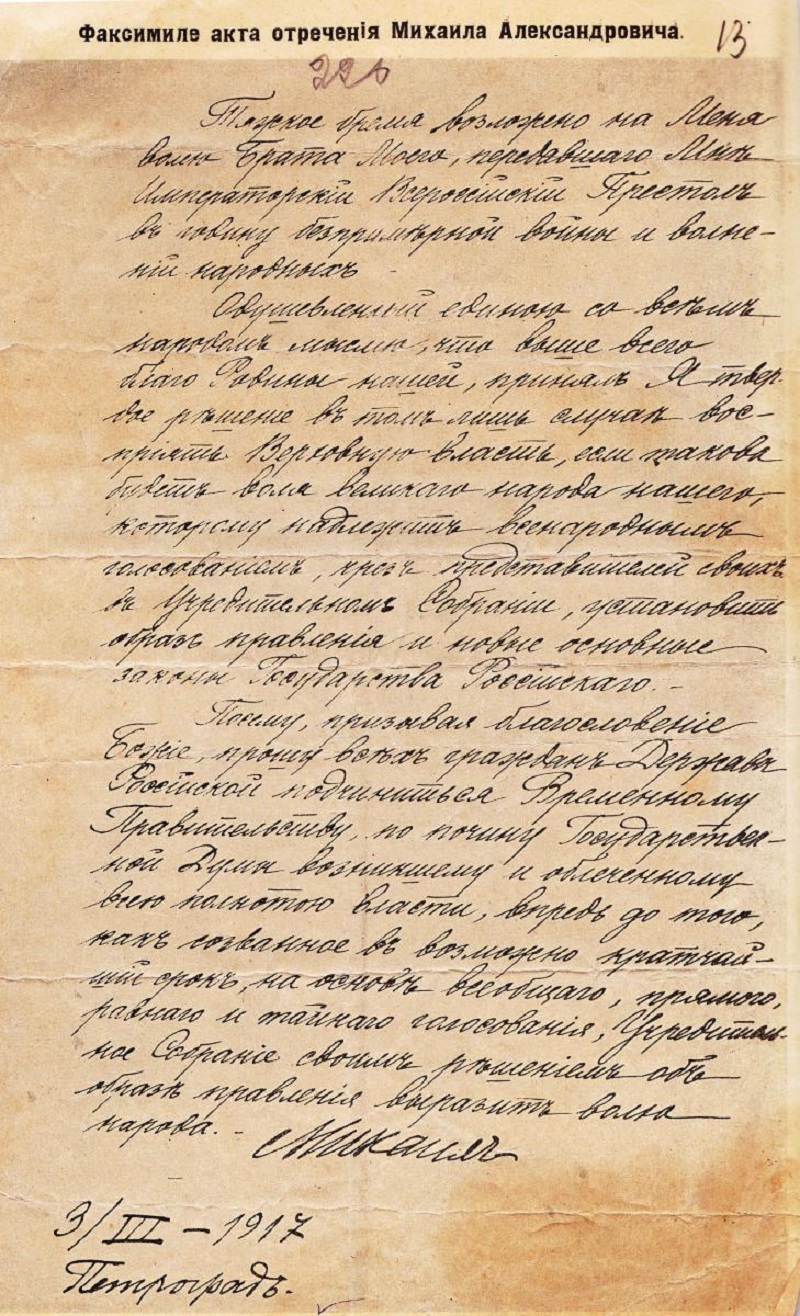 Факсимиле акта отреченія Михаила Александровича.
13
22
Тяжкое бремя возложено на Меня
волею Брата Моего, передавшаго Мнѣ
Императорскій Всероссійскій Престолъ
въ годину безпримѣрной войны и волне-
ній народныхъ.
Одушевленный единою со всѣмъ
народомъ мыслію, что выше всего
благо Родины нашей, принялъ Я твер-
дое рѣшеніе въ томъ лишь случаѣ вос-
пріять Верховную власть, если такова
будетъ воля великаго народа нашего,
которому надлежитъ всенароднымъ
голосованіемъ, чрезъ представителей своихъ
въ Учредительномъ Собраніи, установить
образъ правленія и новые основные
законы Государства Россійскаго.
Посему, призывая благословеніе
Божіе, прошу всѣхъ гражданъ Державы
Россійской подчиниться Временному
Правительству, по почину Государствен-
ной Думы возникшему и облеченному
всею полнотою власти, впредь до того,
какъ созванное въ возможно кратчай-
шій срокъ, на основѣ всеобщаго, прямого,
равнаго и тайнаго голосованія, Учредитель-
ное Собраніе своимъ рѣшеніемъ объ
образѣ правленія выразитъ волю
народа.
Михаилъ
3/III – 1917
Петроградъ.